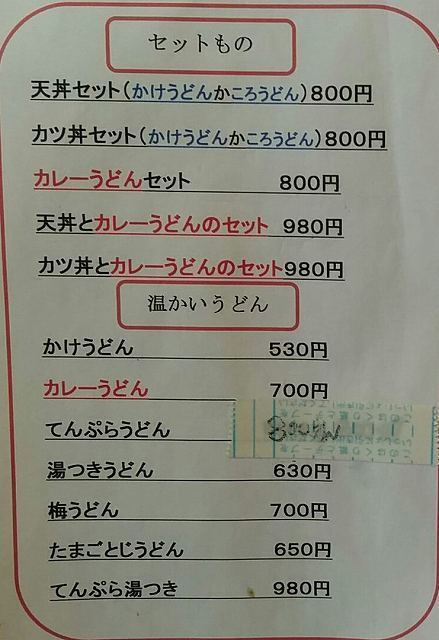 セットもの
天丼セット(かけうどんかころうどん)800円
カツ丼セット(かけうどんかころうどん)800円
カレーうどんセット 800円
天丼とカレーうどんのセット 980円
カツ丼とカレーうどんのセット980円
温かいうどん
かけうどん 530円
カレーうどん 700円
てんぷらうどん
湯つきうどん 630円
梅うどん 700円
たまごとじうどん 650円
てんぷら湯つき 980円